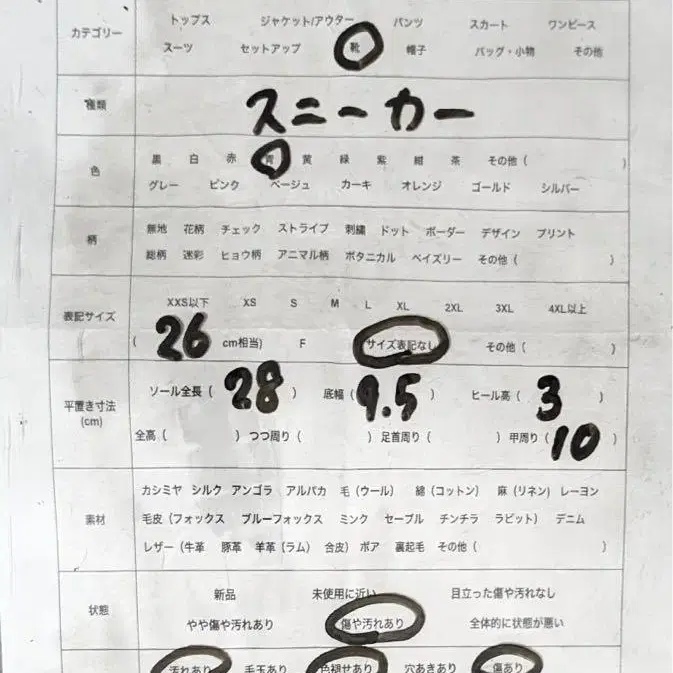 カテゴリー
トップス ジャケット/アウター パンツ スカート ワンピース
スーツ セットアップ 靴 帽子 バッグ・小物 その他
種類
スニーカー
色
黒 白 赤 青 黄 緑 紫 紺 茶 その他 ( )
グレー ピンク ベージュ カーキ オレンジ ゴールド シルバー
柄
無地 花柄 チェック ストライプ 刺繍 ドット ボーダー デザイン プリント
総柄 迷彩 ヒョウ柄 アニマル柄 ボタニカル ペイズリー その他 ( )
表記サイズ
XXS以下 XS S M L XL 2XL 3XL 4XL以上
( 26 cm相当) F サイズ表記なし その他 ( )
平置き寸法
(cm)
ソール全長 ( 28 ) 底幅 ( 9.5 ) ヒール高 ( 3 )
全高 ( ) つつ周り ( ) 足首周り ( ) 甲周り ( 10 )
素材
カシミヤ シルク アンゴラ アルパカ 毛 (ウール) 綿 (コットン) 麻 (リネン) レーヨン
毛皮 (フォックス ブルーフォックス ミンク セーブル チンチラ ラビット) デニム
レザー (牛革 豚革 羊革 (ラム) 合皮) ボア 裏起毛 その他 ( )
状態
新品 未使用に近い 目立った傷や汚れなし
やや傷や汚れあり 傷や汚れあり 全体的に状態が悪い
汚れあり 毛玉あり 色褪せあり 穴あきあり 傷あり